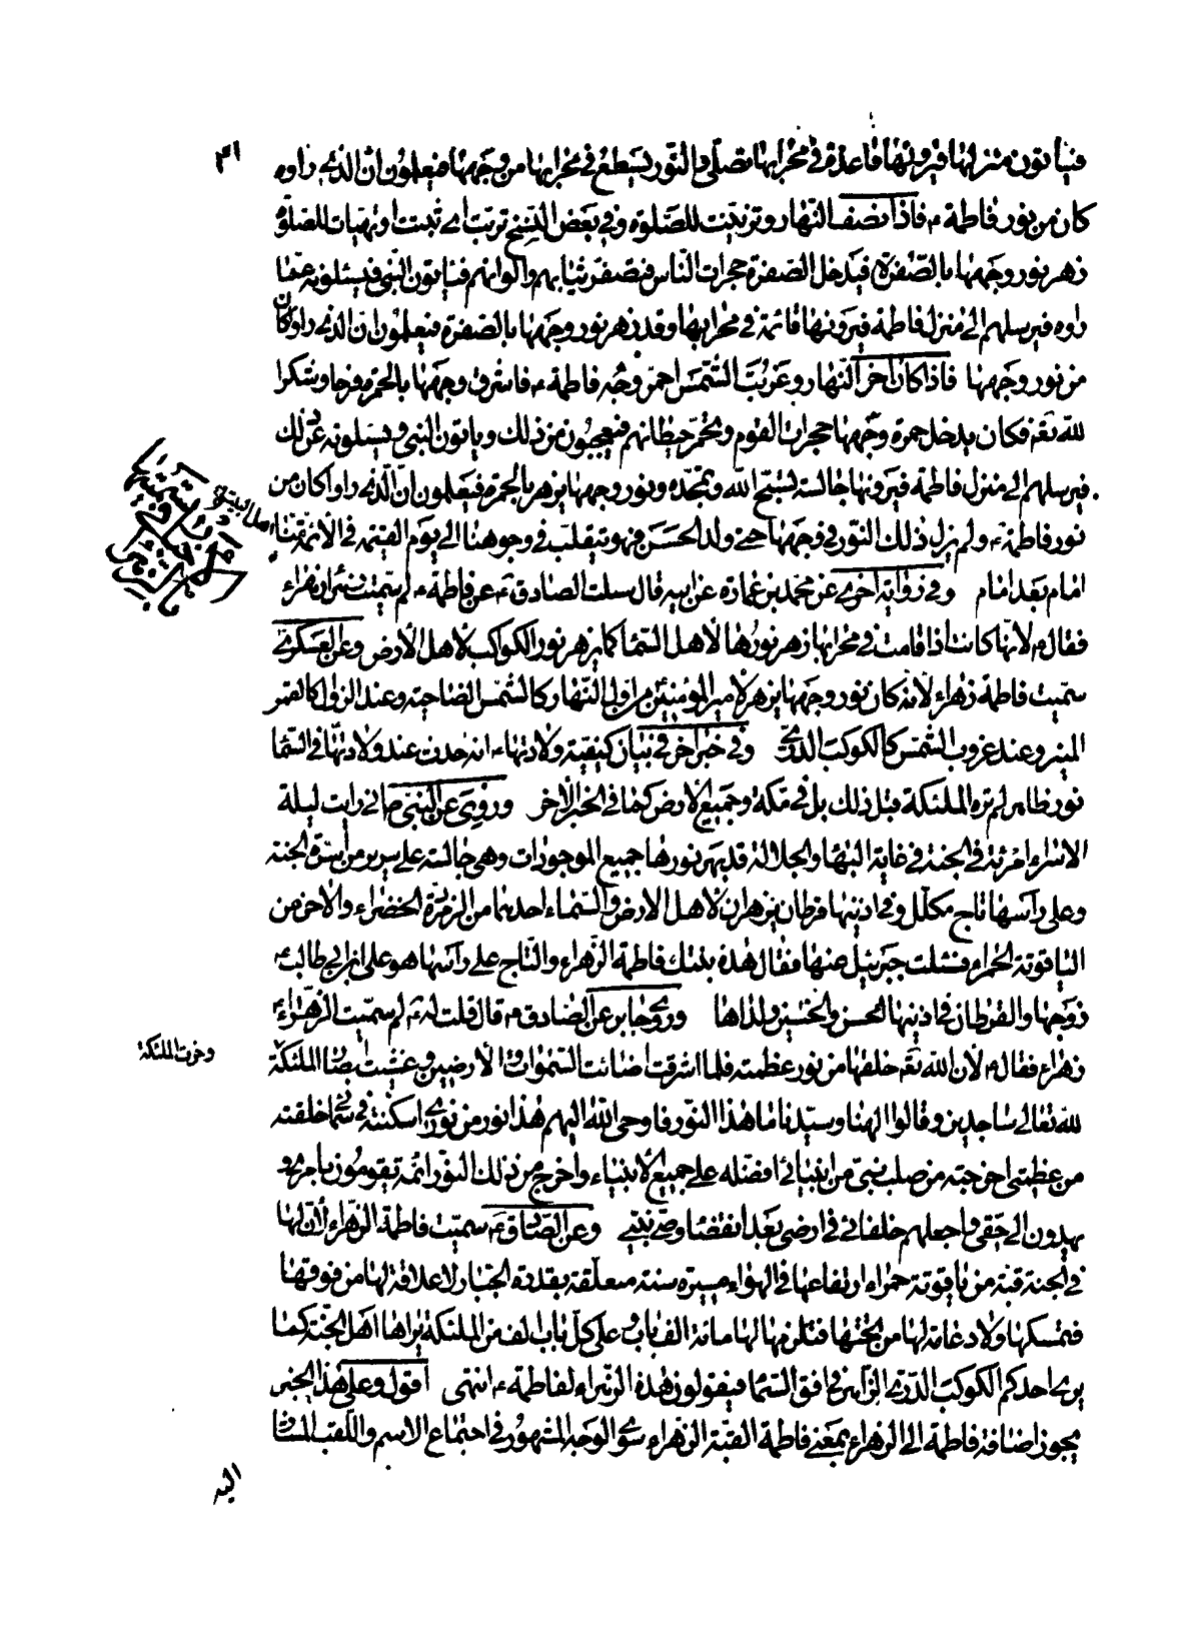 ٣١
فيأتون منزلها فيرونها قاعدة في محرابها تصلّي والنّور يسطع في محرابها من وجهها فيعلمون انّ الذي راوه
كان من نور فاطمة ع فاذا نصف النّهار وتزيّنت للصّلوة وفي بعض النّسخ ترتبت اي ثبتت او تهيّات للصّلوة
زهر نور وجهها بالصّفرة فيدخل الصّفرة حجرات النّاس فتصفر ثيابهم والوانهم فيأتون النّبي فيسئلونه عمّا
راوه فيرسلهم الى منزل فاطمة فيرونها قائمة في محرابها وقد زهر نور وجهها بالصّفرة فيعلمون ان الذي راوا كان
من نور وجهها فاذا كان اخر النّهار وغربت الشّمس احمرّ وجه فاطمة ع فاشرق وجهها بالحمرة فرحا وشكرا
للّه تعه فكان يدخل حمرة وجهها حجرات القوم وتحمرّ حيطانهم فيعجبون من ذلك وياتون النبي ويسئلونه عن ذلك
فيرسلهم الى منزل فاطمة فيرونها جالسة تسبّح اللّه وتمجّده ونور وجهها يزهر بالحمرة فيعلمون انّ الّذي راوا كان من
نور فاطمة ع ولم يزل ذلك النّور في وجهها حتى ولد الحسين فهو يتقلّب في وجوهنا الى يوم القيمة في الائمّة منّا اهل البيت
امام بعد امام وفي رواية اخرى عن محمد بن عماره عن ابيه قال سئلت الصّادق ع عن فاطمة ع لم سمّيت زهراء
فقال ع لانّها كانت اذا قامت في محرابها زهر نورها لاهل السّما كما يزهر نور الكواكب لاهل الارض وعن العسكري
سمّيت فاطمة زهراء لانه كان نور وجهها يزهر لامير المومنين من اول النّهار كالشّمس الضاحية وعند الزوال كالقمر
المنير وعند غروب الشّمس كالكوكب الدرّي وفي خبر اخر في بيان كيفية ولادتهاء انه حدث عند ولادتها في السّما
نور ظاهر لم تره الملئكة قبل ذلك بل في مكة وجميع الارض كما في الخبر الاخر وروي عن النّبي ص اني رايت ليلة
الاسراء امرئة في الجنة في غاية البهاء والجلالة قد بهر نورها جميع الموجودات وهي جالسة على سرير من اسرّة الجنة
وعلى رأسها تاج مكلّل وفي اذنيها قرطان يزهران لاهل الارض والسّماء احدهما من الزمرّدة الخضراء والاخر من
الياقوتة الحمراء فسئلت جبرئيل عنها فقال هذه بنتك فاطمة الزهراء والتّاج على رأسها هو علي ابن ابي طالب ع
زوجها والقرطان في اذنيها الحسن والحسين ولداها وروي جابر عن الصّادق ع قال قلت له ع لم سمّيت الزهراء
زهراء فقال ع لان اللّه تعه خلقها من نور عظمته فلما اشرقت اضائت السّموات والارضين وغشيت ابصار الملئكة
وخرت الملئكة
للّه تعالى ساجدين وقالوا الهنا وسيّدنا ما هذا النّور فاوحى اللّه اليهم هذا نور من نوري اسكنته في سمائي خلقته
من عظمتي اخرجته من صلب نبيّ من انبيائي افضّله على جميع الانبياء واخرج من ذلك النّور ائمّة يقومون بامري و
يهدون الى حقّي واجعلهم خلفائي في ارضي بعد انقضاء وصيّ نبيّي وعن الصّادق ع سمّيت فاطمة الزهراء لانّ لها
في الجنة قبّة من ياقوتة حمراء ارتفاعها في الهواء مسيرة سنة معلّقة بقدرة الجبّار لا علاقة لها من فوقها
فتمسكها ولا دعامة لها من تحتها فتلزمها لها مائة الف باب وعلى كلّ باب الف من الملئكة يراها اهل الجنّة كما
يرى احدكم الكوكب الدّري الزّاهر في افق السّما فيقولون هذه الزهراء لفاطمة ع انتهى اقول وعلى هذا الخبر
يجوز اضافة فاطمة الى الزهراء بمعنى فاطمة القبّة الزهراء سوى الوجه المشهور في اجتماع الاسم واللّقب المشار
اليه